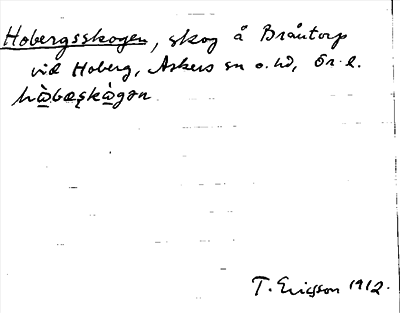 Hobergsskogen, skog å Bråntorp
vid Hoberg, Askers sn o. hd, Ör. l.
hὼbæskὼgən.
T. Ericsson 1912.